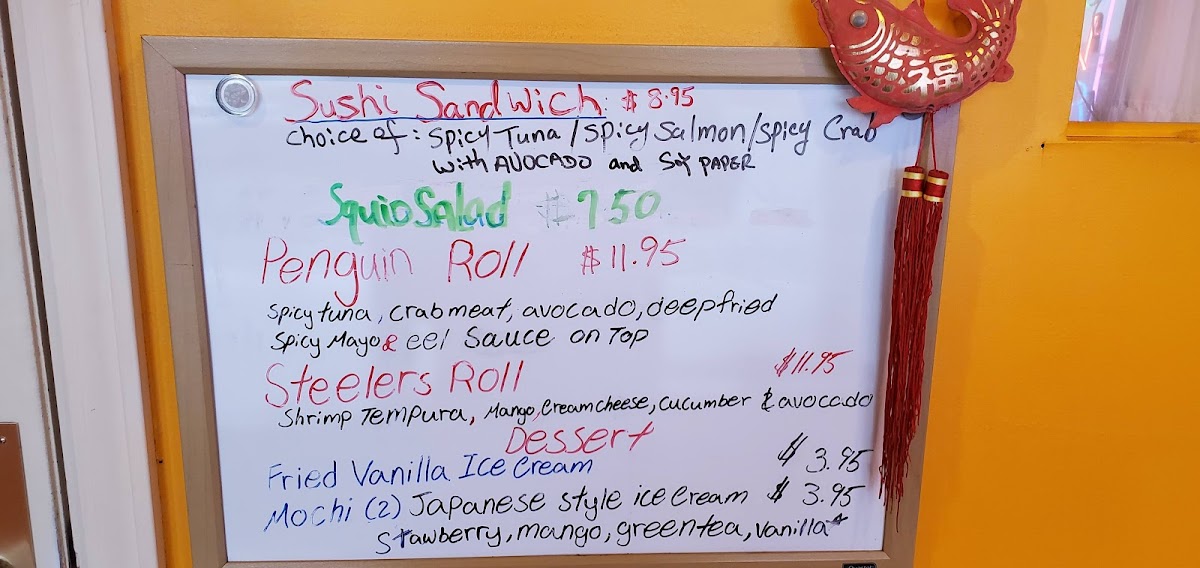 Sushi Sandwich: $8.95
Choice of: Spicy Tuna / Spicy Salmon / Spicy Crab
with AVOCADO and Soy PAPER
Squio Salad $7.50
Penguin Roll $11.95
Spicy tuna, crabmeat, avocado, deepfried
Spicy Mayo & eel Sauce on Top
Steelers Roll $11.95
Shrimp Tempura, Mango, Cream cheese, cucumber & avocado
Dessert
Fried Vanilla Ice Cream $3.95
Mochi (2) Japanese style ice cream $3.95
Strawberry, mango, green tea, vanilla
福